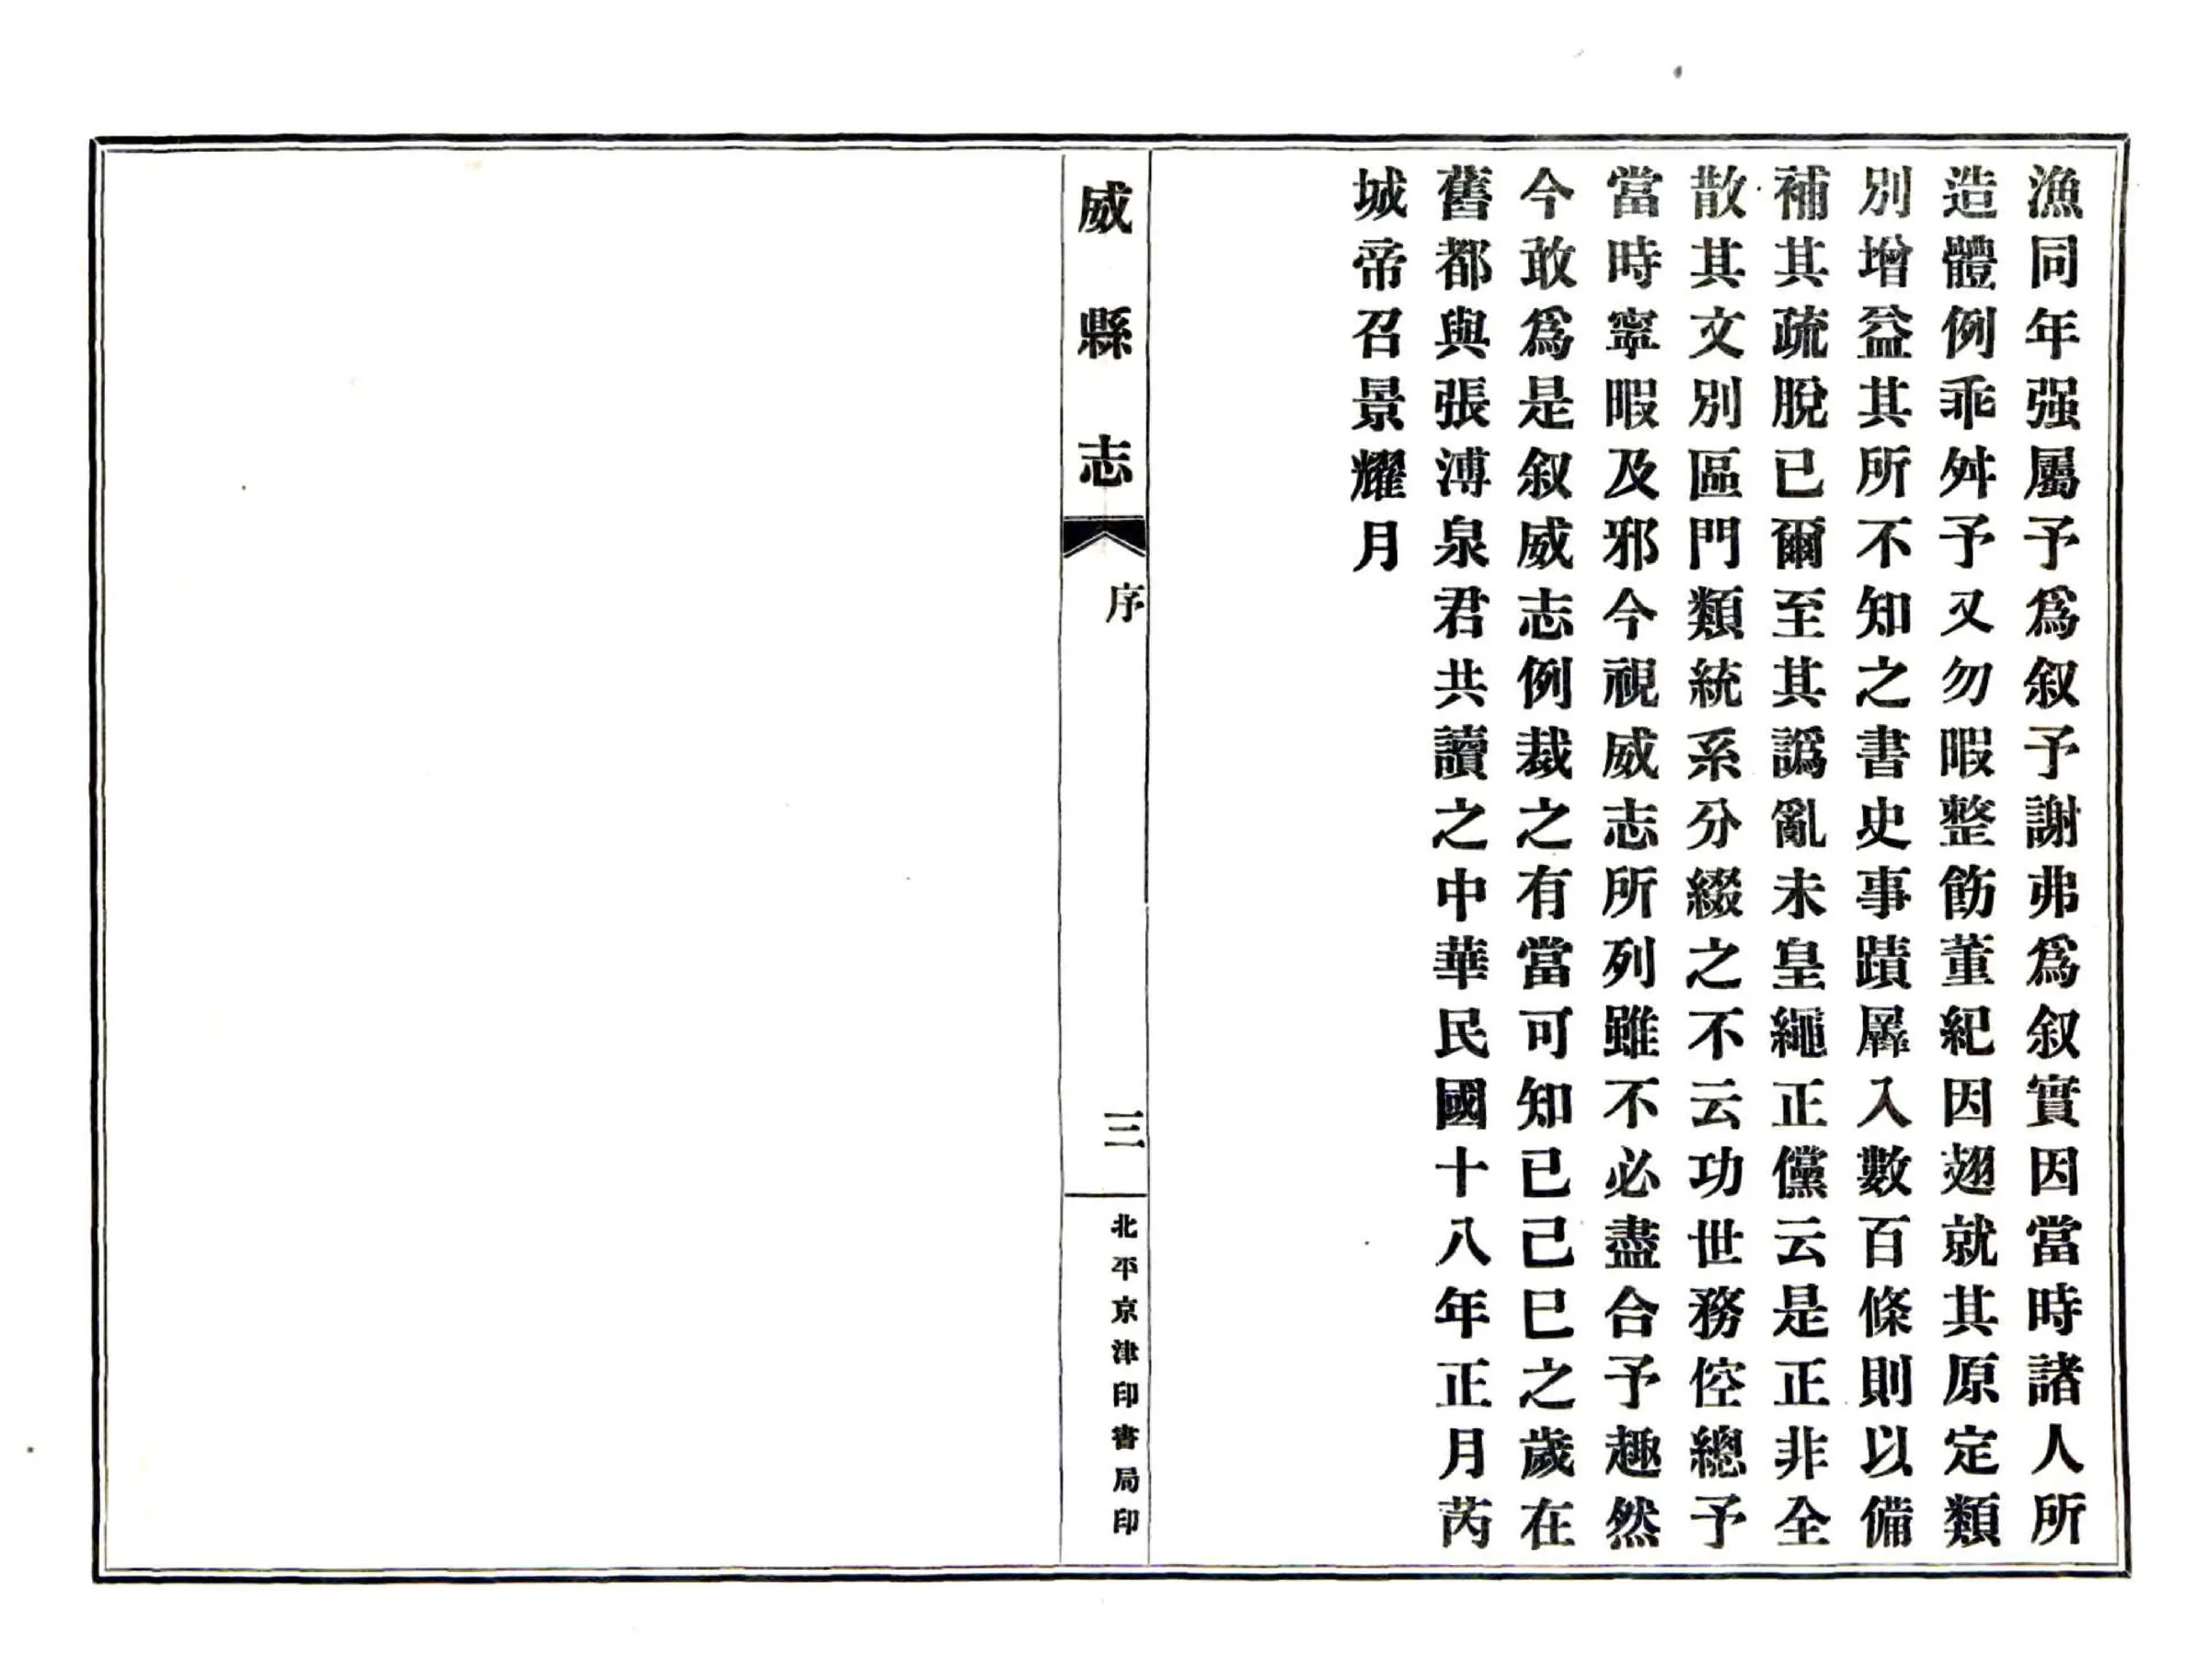 漁同年强屬予爲叙予謝弗爲叙實因當時諸人所
造體例乖舛予又勿暇整飭董紀因翅就其原定類
別增益其所不知之書史事蹟羼入數百條則以備
補其疏脫已爾至其譌亂未皇繩正儻云是正非全
散其文別區門類統系分綴之不云功世務倥總予
當時寧暇及邪今視威志所列雖不必盡合予趣然
今敢爲是叙威志例裁之有當可知已己巳之歲在
舊都與張溥泉君共讀之中華民國十八年正月芮
城帝召景耀月
威縣志
序
三
北平京津印書局印